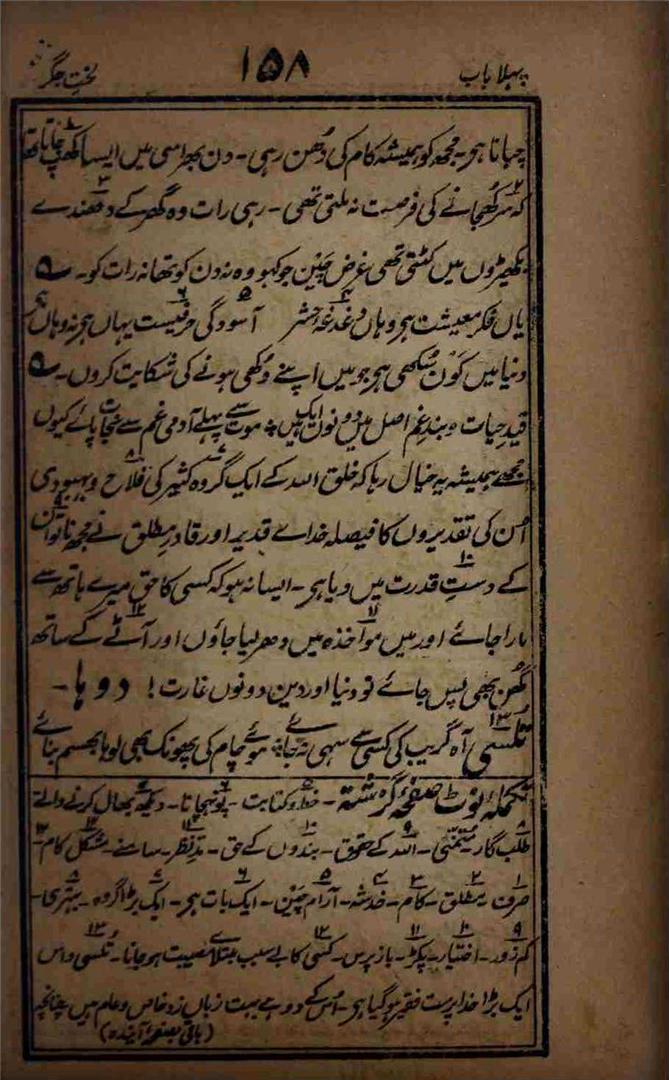 پہلا باب ۱۵۸ لختِ جگر
چبانا ہی۔ مجھ کو ہمیشہ کام کی دُھن رہی۔ دن بھر اسی میں ایسا کھپ جاتا تھا
کہ سر کھجانے کی فرصت نہ ملتی تھی۔ رہی رات وہ گھر کے دھندے
بکھیڑوں میں کٹتی تھی غرض چین جو کہو وہ نہ دن کو تھا نہ رات کو۔ ؎
یاں فکرِ معیشت ہی وہاں دغدغۂ حشر آسودگی حرفیست یہاں ہی نہ وہاں ہی
دنیا میں کون سُکھی ہی جو میں اپنے دُکھی ہونے کی شکایت کروں۔ ؎
قیدِ حیات و بندِ غم اصل میں دونوں ایک ہیں؛ موت سے پہلے آدمی غم سے نجات پائے کیوں
مجھے ہمیشہ یہ خیال رہا کہ خلق اللہ کے ایک گروہ کثیر کی فلاح و بہبودی
اُن کی تقدیروں کا فیصلہ خدائے قدیر اور قادرِ مطلق نے مجھ ناتواں
کے دستِ قدرت میں دیا ہی۔ ایسا نہ ہو کہ کسی کا حق میرے ہاتھ سے
مارا جائے اور میں مواخذہ میں دھر لیا جاؤں اور آٹے کے ساتھ
گھُن بھی پس جائے تو دنیا اور دین دونوں غارت! دوہا۔
تُلسی آہ گریب کی کسی سے سہی نہ جائے؛ موئے چام کی پھونک بھی لوہا بھسم بنائے
تکملۂ نوٹ صفحۂ گزشتہ۔ خط و کتابت۔ پونہچانا۔ دیکھ بھال کرنے والے
طلب گار۔ متمنّی۔ اللہ کے حقوق۔ بندوں کے حق۔ مدِّ نظر۔ سامنے۔ مشکل کام۔
صرف۔ مطلق۔ کام۔ خدشہ۔ آرام چین۔ ایک بات ہی۔ ایک بڑا گروہ۔ بہتری۔
کم زور۔ اختیار۔ پکڑ۔ باز پرس۔ کسی کا بے سبب مبتلائے مصیبت ہو جانا۔ تُلسی داس
ایک بڑا خدا پرست فقیر ہو گیا ہی۔ اُس کے دوہے بہت زباں زدِ خاص و عام ہیں چنانچہ
(باقی بصفحۂ آیندہ)